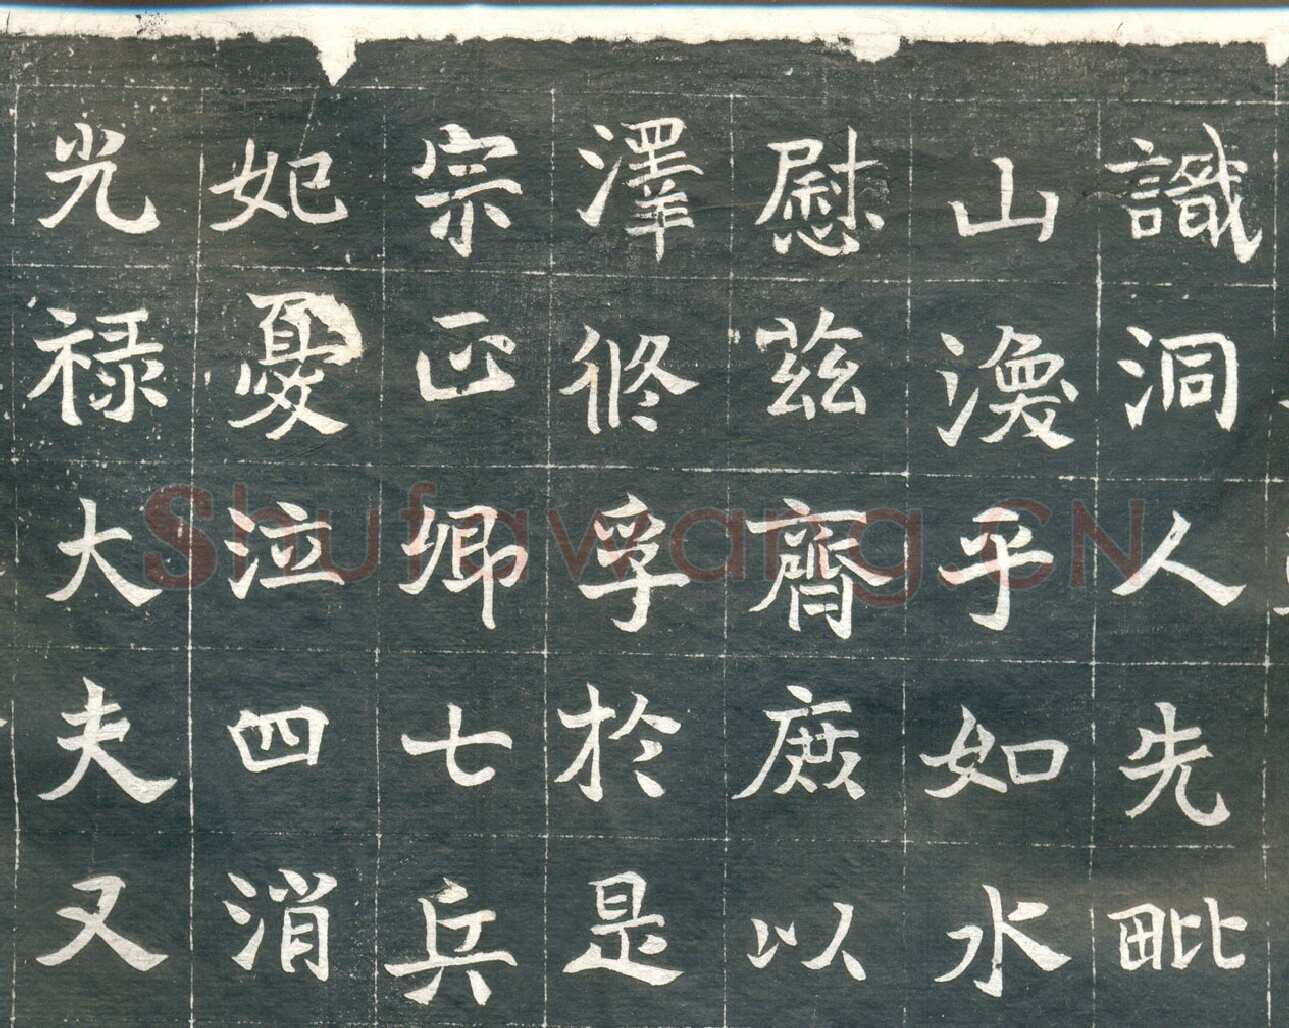 識洞人先毗
山渙乎如水
慰茲齊庶以
澤脩孚於是
宗正卿七兵
妃憂泣四消
光禄大夫又
Shufawang.CN